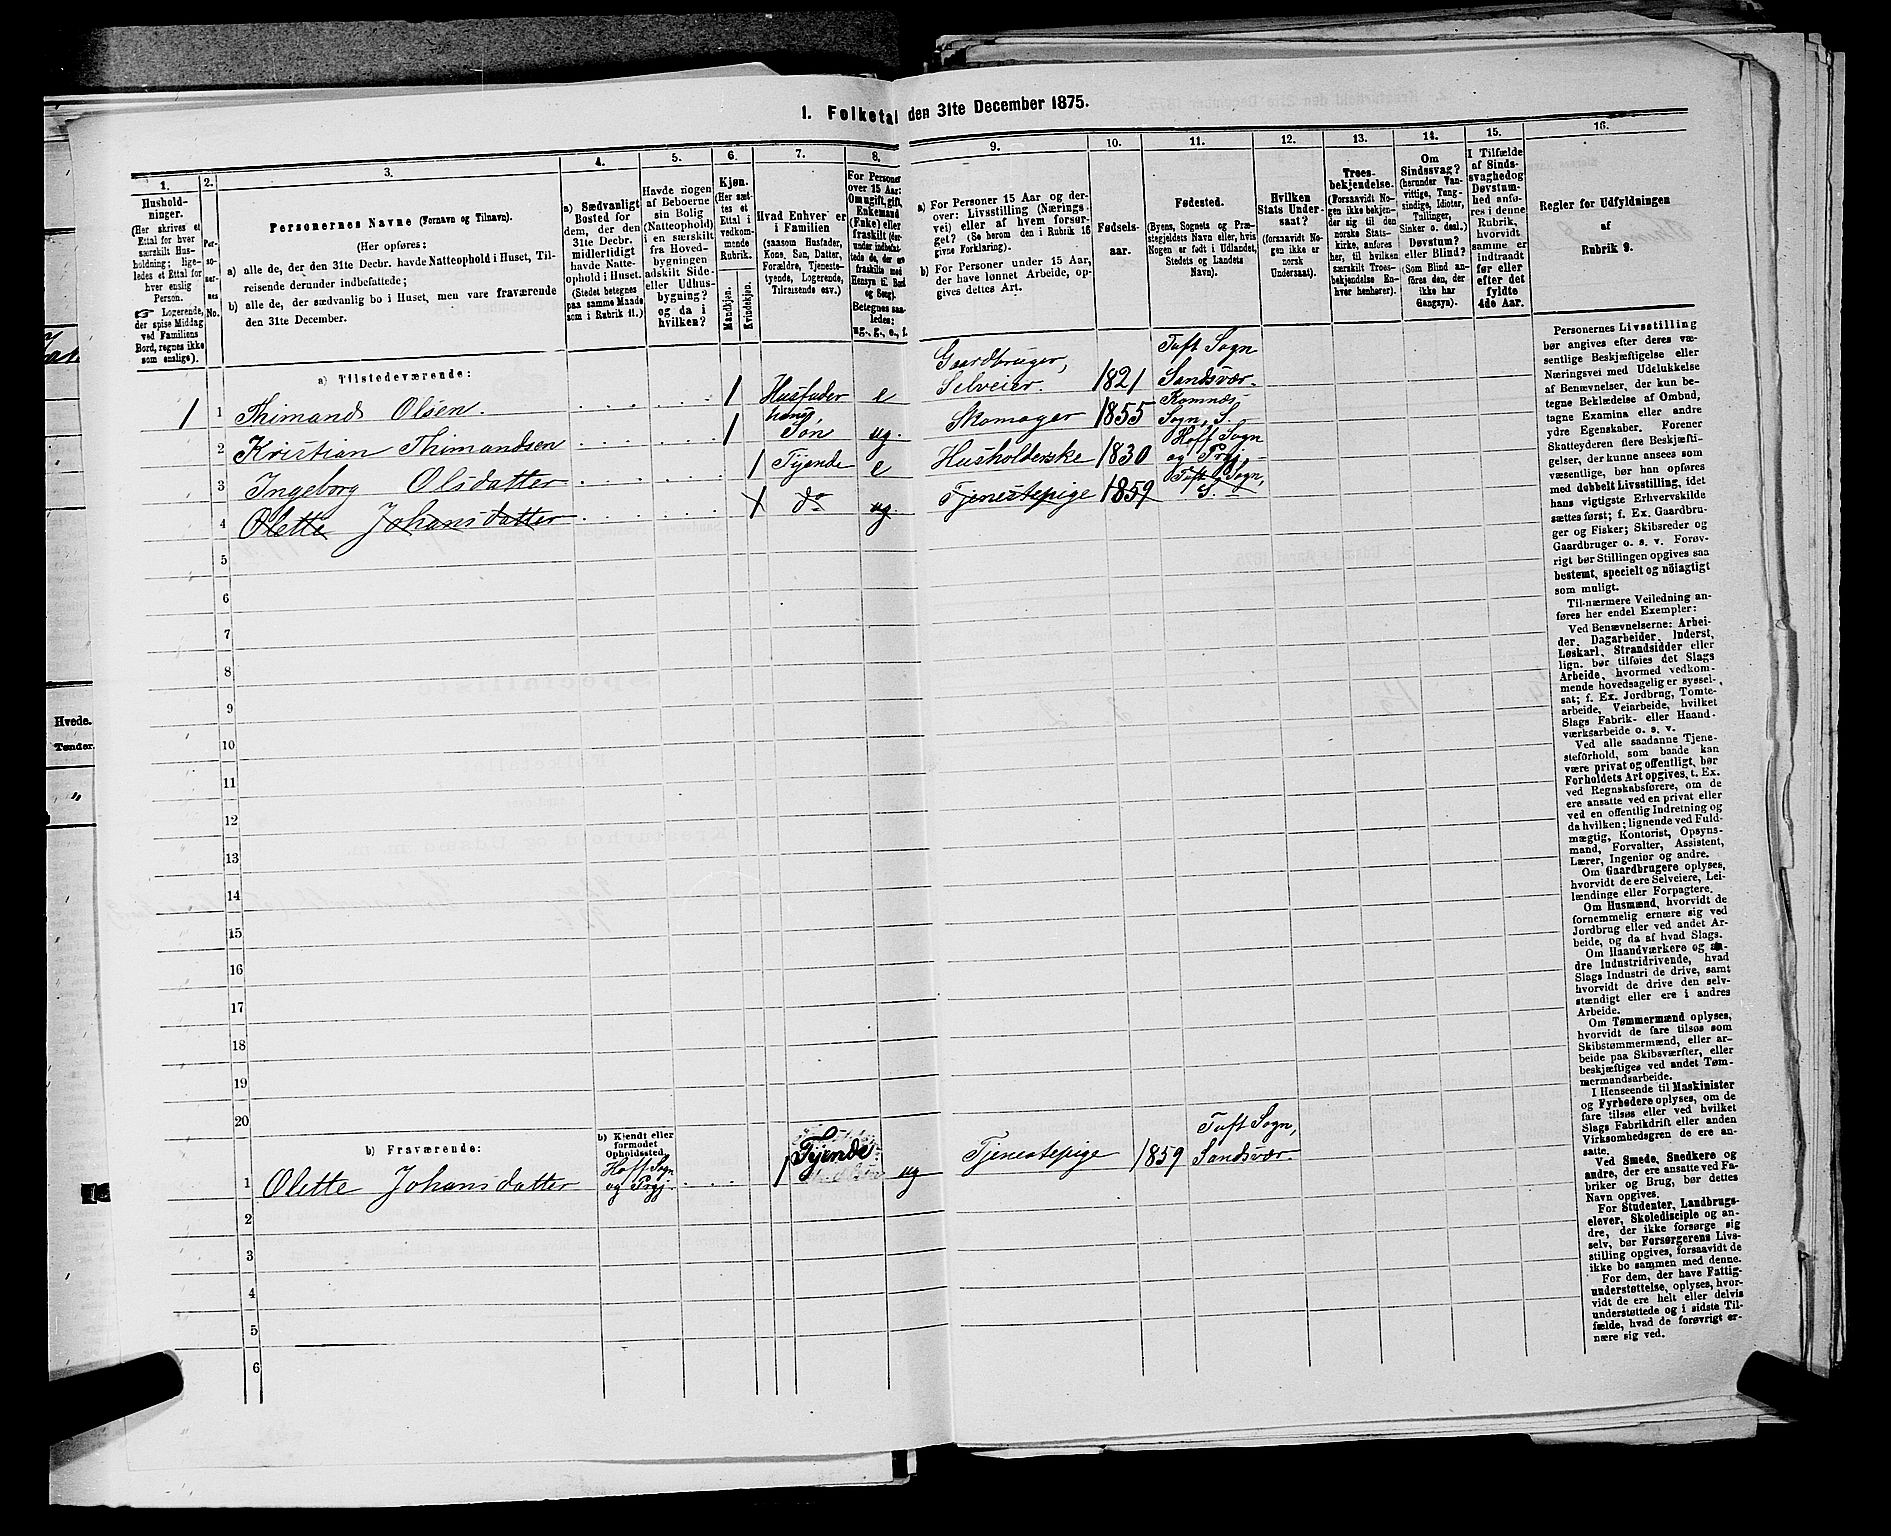 1. Folketal den 31te December 1875.
1.
Hushold-
ninger.
(Her skrives et
Ettal for hver
særskilt Hus-
holdning; lige-
ledes et Ettal for
hver enslig
Person.
☞ Logerende,
der spise Middag
ved Familiens
Bord, regnes ikke
som enslige).
2.
Per-
so-
ner-
nes
No.
3.
Personernes Navne (Fornavn og Tilnavn).
(Her opføres:
a) alle de, der den 31te Decbr. havde Natteophold i Huset, Til-
reisende derunder indbefattede;
b) alle de, der sædvanlig bo i Huset, men vare fraværende
den 31te December.
4.
a) Sædvanligt
Bosted for
dem, der den
31te Decbr.
midlertidigt
havde Natte-
ophold i Huset.
(Stedet betegnes
paa samme Maade
som i Rubrik 11.)
5.
Havde nogen
af Beboerne
sin Bolig
(Natteophold)
i en særskilt
fra Hoved-
bygningen
adskilt Side-
eller Udhus-
bygning?
og da i
hvilken?
6.
Kjøn.
(Her sæt-
tes et
Ettal i
vedkom-
mende
Rubrik.
Mandkjøn.
Kvindekjøn.
7.
Hvad Enhver er
i Familien
(saasom Husfader,
Kone, Søn, Datter,
Forældre, Tjeneste-
tyende, Logerende,
Tilreisende osv.)
8.
For Personer
over 15 Aar:
Om ugift, gift,
Enkemand
(Enke) eller
fraskilt
Betegnes saa-
ledes:
ug., g., e., f.
9.
a) For Personer 15 Aar og der-
over: Livsstilling (Nærings-
vei) eller af hvem forsør-
get? (Se herom den i Rubrik 16
givne Forklaring).
b) For Personer under 15 Aar,
der have lønnet Arbeide, op-
gives dettes Art.
10.
Fødsels-
aar.
11.
Fødested.
(Byens, Sognets og Præ-
stegjeldets Navn eller, hvis
Nogen er født i Udlandet,
Stedets og Landets
Navn).
12.
Hvilken
Stats Under-
saat?
(forsaavidt No-
gen ikke er
norsk
Undersaat).
13.
Troes-
bekjendelse.
(Forsaavidt No-
gen ikke bekjen-
der sig til den
norske Stats-
kirke, anføres
her, til hvilken
særskilt Troes-
bekjendelse En-
hver henhører).
14.
Om
Sindssvag?
(herunder Van-
vittige, Tung-
sindige, Idioter,
Tullinger,
Sinker o. desl.)
Døvstum?
eller Blind?
(Som Blind an-
føres den, der
ikke har
Gangsyn).
15.
I Tilfælde
af Sinds-
svaghed og
Døvstum-
hed anfø-
res i denne
Rubrik,
hvorvidt
samme er
indtraadt
før eller
efter det
fyldte
4de Aar.
16.
Regler for Udfyldningen
af
Rubrik 9.
a) Tilstedeværende:
1 1 Thimands Olsen. 1 Husfader e Gaardbruger, Selveier. 1821 Tuft Sogn Sandsvær.
2 Kristian Thimandsen 1 hans Søn ug. Skomager 1855 Komnæs Sogn, S.
3 Ingeborg Olsdatter 1 Tyende e Husholderske 1830 Hoff Sogn og Prgj.
4 Olette Johansdatter 1 do ug. Tjenestepige 1859 Tuft Sogn, S.
5
6
7
8
9
10
11
12
13
14
15
16
17
18
19
20
b) Fraværende:
b) Kjendt eller
formodet
Opholdssted.
1 Olette Johansdatter Hoff Sogn og Prgj. 1 Tyende ug Tjenestepige 1859 Tuft Sogn, Sandsvær.
2
3
4
5
6
Personernes Livsstilling
bør angives efter deres væ-
sentlige Beskjæftigelse eller
Næringsvei med Udelukkelse
af Benævnelser, der kun be-
tegne Beklædelse af Ombud,
tagne Examina eller andre
ydre Egenskaber. Forener
Skatteyderen flere Beskjæfti-
gelser, der kunne ansees som
væsentlige, bør han opføres
med dobbelt Livsstilling, idet
hans vigtigste Erhvervskilde
sættes først; f. Ex. Gaardbru-
ger og Fisker; Skibsreder og
Gaardbruger o. s. v. Forøv-
rigt bør Stillingen opgives saa
bestemt, specielt og nöiagtigt
som muligt.
Til nærmere Veiledning an-
føres her endel Exempler:
Ved Benævnelserne: Arbei-
der, Dagarbeider, Inderst,
Løskarl, Strandsidder eller
lign. bør tilføies det Slags
Arbeide, hvormed vedkom-
mende hovedsagelig er syssel-
sat; f. Ex. Jordbrug, Tomte-
arbeide, Veiarbeide, hvilket
Slags Fabrik- eller Haand-
værksarbeide o. s. v.
Ved alle saadanne Tjene-
steforhold, som baade kan
være privat og offentligt, bør
Forholdets Art opgives, t. Ex.
ved Regnskabsførere, om de
ere ansatte ved en privat eller
ved en offentlig Indretning og
da hvilken; lignende ved Fuld-
mægtig, Kontorist, Opsyns-
mand, Forvalter, Assistent,
Lærer, Ingeniør og andre.
Om Gaardbrugere oplyses,
hvorvidt de ere Selveiere, Lei-
lændinge eller Forpagtere.
Om Husmænd, hvorvidt de
fornemmelig ernære sig ved
Jordbrug eller ved andet Ar-
beide, og da af hvad Slags.
Om Haandværkere og an-
dre Industridrivende, hvad
Slags Industri de drive, samt
hvorvidt de drive den selv-
stændigt eller ere i andres
Arbeide.
Om Tømmermænd oplyses,
hvorvidt de fare tilsøs som
Skibstømmermænd, eller ar-
beide paa Skibsværfter, eller
beskjæftiges ved andet Tøm-
mermandsarbeide.
I Henseende til Maskinister
og Fyrbødere oplyses, om de
fare tilsøs eller ved hvilket
Slags Fabrikdrift eller anden
Virksomhedsgren de ere an-
satte.
Ved Smede, Snedkere og
andre, der ere ansatte ved Fa-
briker og Brug, bør dettes
Navn opgives.
For Studenter, Landbrugs-
elever, Skoledisciple og an-
dre, der ikke forsørge sig
selv, bør Forsørgerens Livs-
stilling opgives, forsaavidt de
ikke bo sammen med denne.
For dem, der have Fattig-
understøttelse, oplyses, hvor-
vidt de ere helt eller delvis
understøttede og i sidste Til-
fælde, hvad de forøvrigt er-
nære sig ved.
Hvede.
Tønder.